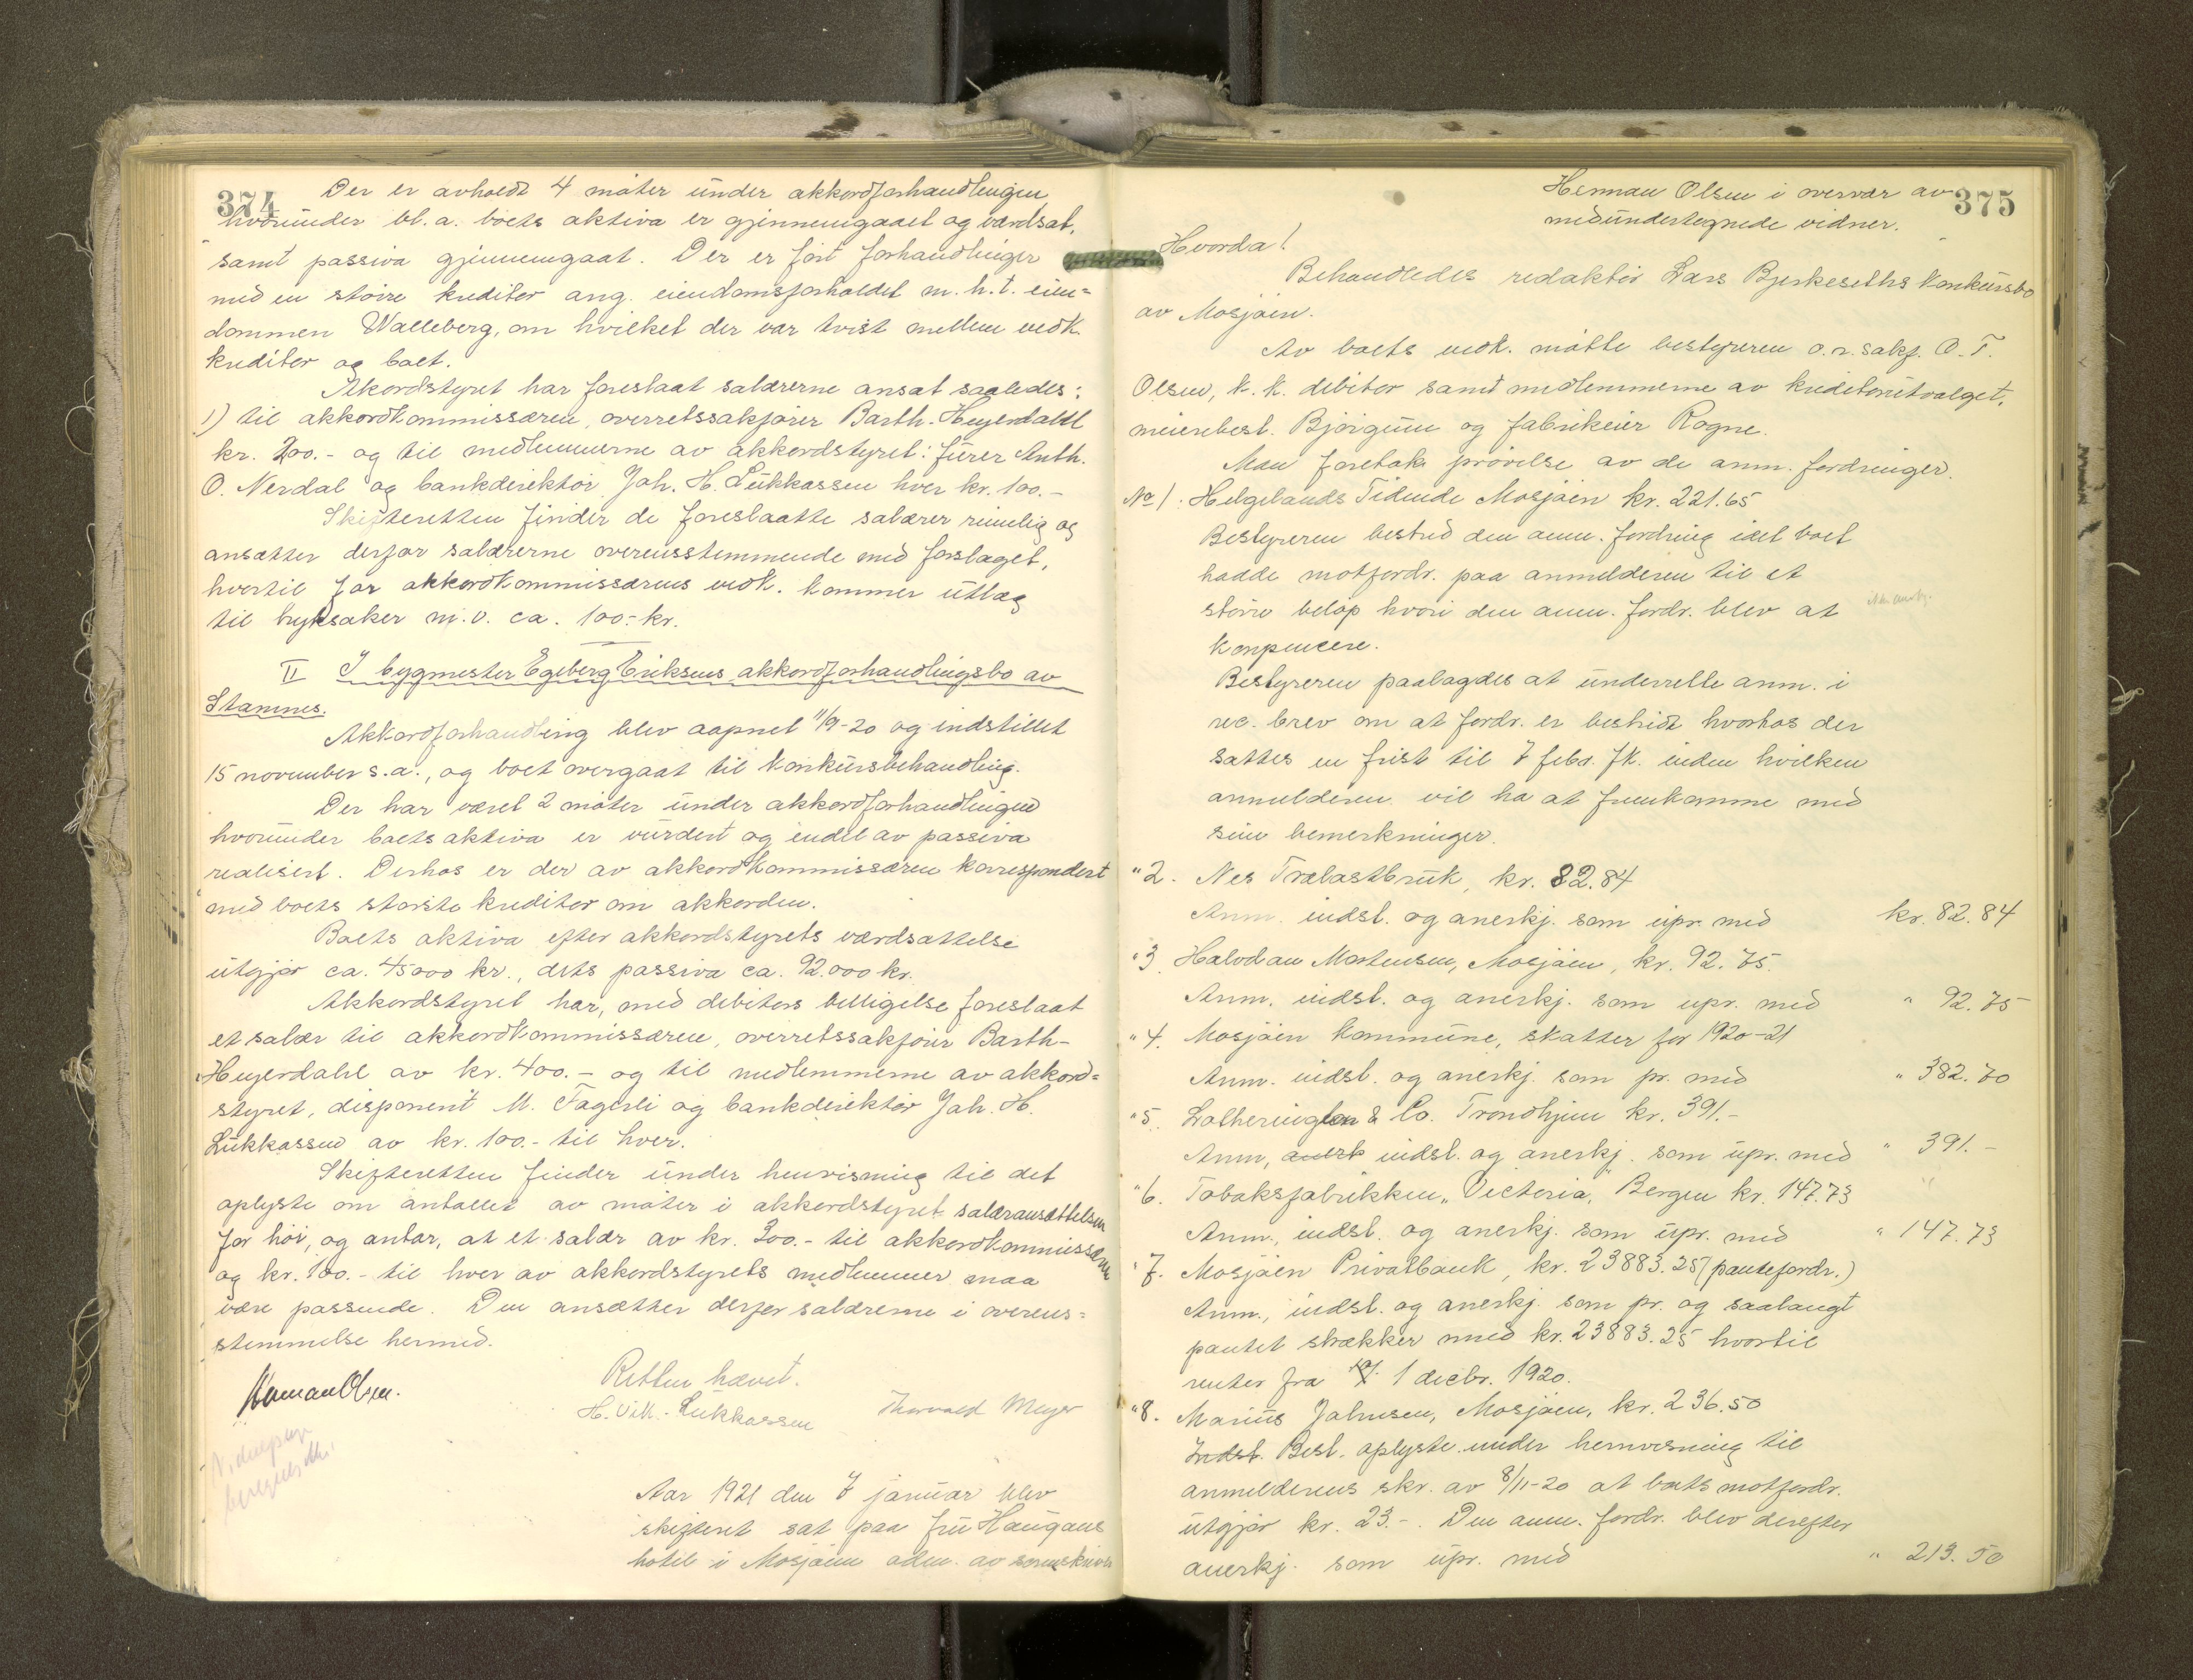 374
Der er avholdt 4 møter under akkordforhandlingen
hvorunder bl. a. boets aktiva er gjennemgaaet og værdsat,
samt passiva gjennemgaat. Der er ført forhandlinger
med en større kreditor ang. eiendomsforholdet m. h. t. eien=
dommen Walleberg, om hvilket der var tvist mellem vedk.
kreditor og boet.
Akordstyret har foreslaat salærerne ansat saaledes:
1) til akkordkommissæren, overretssakfører Barth-Heyerdahl
kr. 200.- og til medlemmerne av akkordstyret: fører Anth.
O. Nerdal og bankdirektør Joh. H. Lukkassen hver kr. 100.-
Skifteretten finder de foreslaatte salærer rimelig og
ansætter derfor salærerne overensstemmende med forslaget,
hvortil for akkordkommissærens vedk. kommer utlæg
til tryksaker m. v. ca. 100.- kr.
II I bygmester Egeberg Eriksens akkordforhandlingsbo av
Stamnes.
Akkordforhandling blev aapnet 11/9-20 og indstillet
15 november s. a., og boet overgaat til konkursbehandling.
Der har været 2 møter under akkordforhandlingen
hvorunder boets aktiva er vurdert og endel av passiva
realisert. Derhos er der av akkordkommissæren korrespondert
med boets største kreditor om akkorden.
Boets aktiva efter akkordstyrets værdsættelse
utgjør ca. 45000 kr., dets passiva ca. 92.000 kr.
Akkordstyret har, med debitors billigelse foreslaat
et salær til akkordkommissæren, overretssakfører Barth-
Heyerdahl av kr. 400.- og til medlemmerne av akkord=
styret, disponent M. Fagerli og bankdirektør Joh. H.
Lukkassen av kr. 100.- til hver.
Skifteretten finder under henvisning til det
oplyste om antallet av møter i akkordstyret salæransættelsen
for høi, og antar, at et salær av kr. 300.- til akkordkommissæren
og kr. 100.- til hver av akkordstyrets medlemmer maa
være passende. Den ansætter derfor salærerne i overens=
stemmelse hermed.
Retten hævet.
Herman Olsen.
H. Vilh. Lukkassen Thorvald Meyer
Aar 1921 den 7 januar blev
skifteret sat paa fru Haugans
hotel i Mosjøen adm. av sorenskriver
375
Herman Olsen i overvær av
medundertegnede vidner.
Hvorda!
Behandledes redaktør Lars Bjerkeseths konkursbo
av Mosjøen.
Av boets vedk. møtte bestyreren o.r.sakf. O. T.
Olsen, k. k. debitor samt medlemmerne av kreditorutvalget,
meieribest. Bjørgum og fabrikeier Rogne.
Man foretok prøvelse av de anm. fordringer.
No 1. Helgelands Tidende Mosjøen kr. 221.65
Bestyreren bestred den anm. fordring idet boet
hadde motfordr. paa anmelderen til et
større beløp hvori den anm. fordr. blev at
kompensere.
Bestyreren paalagdes at underrette anm. i
rec. brev om at fordr. er bestridt hvorhos der
sattes en frist til 7 febr. fk. inden hvilken
anmelderen vil ha at fremkomme med
sine bemerkninger.
"2. Nes Trælastbruk, kr. 82.84
Anm. indst. og anerkj. som upr. med kr. 82.84
"3. Halvdan Mortensen, Mosjøen, kr. 92.75.
Anm. indst. og anerkj. som upr. med " 92.75
"4. Mosjøen kommune, skatter for 1920-21
Anm. indst. og anerkj. som pr. med " 382.70
"5. Lotherington & Co. Trondhjem kr. 391.-
Anm, anerk indst. og anerkj. som upr. med " 391.-
"6. Tobaksfabrikken "Victoria," Bergen kr. 147.73
Anm., indst. og anerkj. som upr. med " 147.73
"7. Mosjøen Privatbank, kr. 23883.25 (pantefordr.)
Anm., indst. og anerkj. som pr. og saalangt
pantet strækker med kr. 23883.25 hvortil
renter fra 1 decbr. 1920.
"8. Marius Johnsen, Mosjøen, kr. 236.50
Indst. Best. oplyste under henvisning til
anmelderens skr. av 8/11-20 at boets motfordr.
utgjør kr. 23.-. Den anm. fordr. blev derefter
anerkj. som upr. med " 213.50